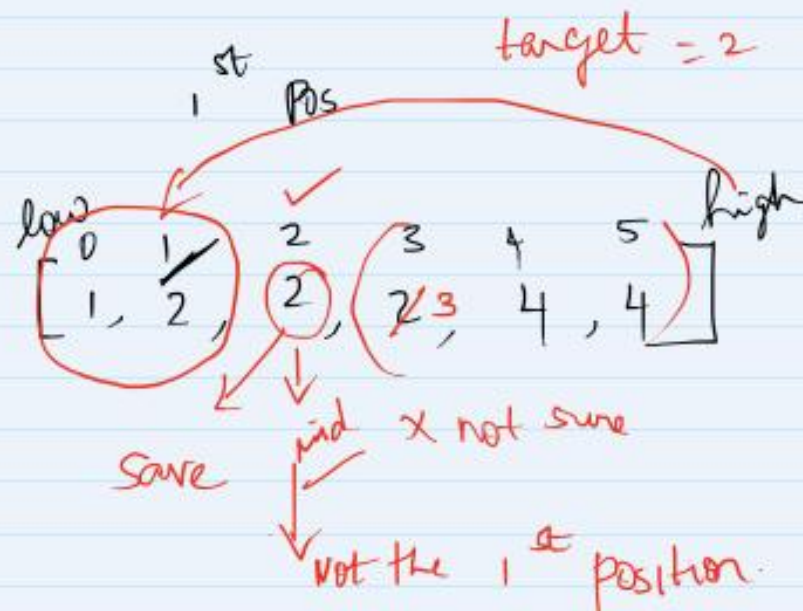 target = 2
1st Pos
low high
0 1 2 3 4 5
[1, 2, 2, 2 3, 4, 4]
save mid x not sure
Not the 1st position.